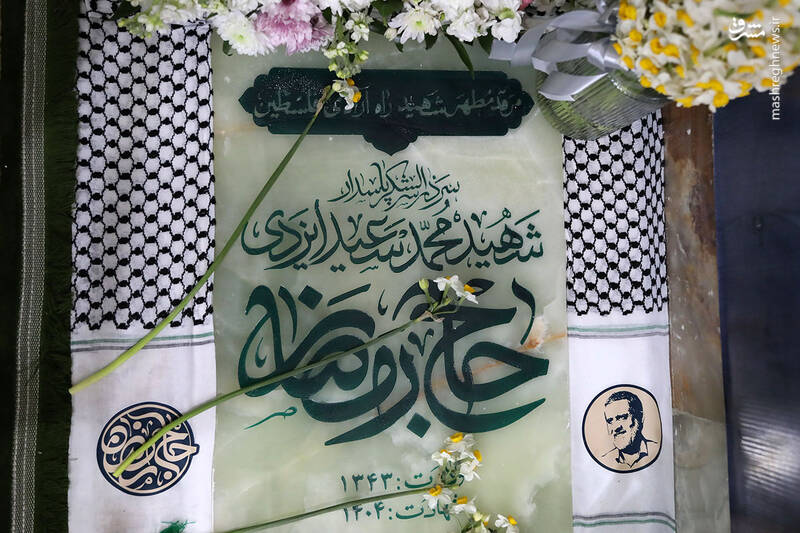 مرقد مطهر شهید راه آزادی فلسطین
سردار سرلشکر پاسدار
شهید محمد سعید ایزدی
حاج رمضان
ولادت: ۱۳۴۳
شهادت: ۱۴۰۴
حاج رمضان
مشرق
mashreghnews.ir